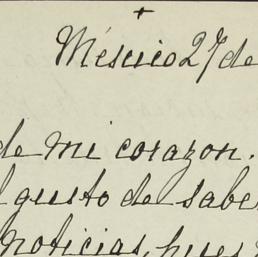 Méscico 27 de
de mi corazon.
l gusto de sabe
noticias, pues